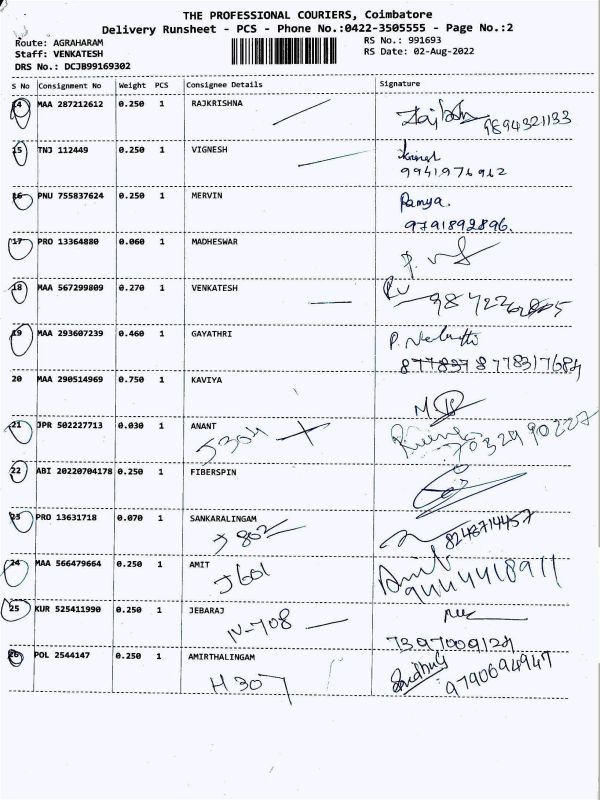 THE PROFESSIONAL COURIERS, Coimbatore
Delivery Runsheet - PCS - Phone No.:0422-3505555 - Page No.:2
Route: AGRAHARAM RS No.: 991693
Staff: VENKATESH RS Date: 02-Aug-2022
DRS No.: DCJB99169302
S No Consignment No Weight PCS Consignee Details Signature
14 MAA 287212612 0.250 1 RAJKRISHNA
9894321133
15 TNJ 112449 0.250 1 VIGNESH
9941976962
16 PNU 755837624 0.250 1 MERVIN Ramya.
9791892896.
17 PRO 13364880 0.060 1 MADHESWAR
18 MAA 567299809 0.270 1 VENKATESH
19 MAA 293607239 0.460 1 GAYATHRI
8778317684
20 MAA 290514969 0.750 1 KAVIYA
21 JPR 502227713 0.030 1 ANANT
5304 7032990227
22 ABI 20220704178 0.250 1 FIBERSPIN
23 PRO 13631718 0.070 1 SANKARALINGAM
J 802 8248714457
24 MAA 566479664 0.250 1 AMIT Amit
J601 9444418911
25 KUR 525411990 0.250 1 JEBARAJ
N-708 7397009124
26 POL 2544147 0.250 1 AMIRTHALINGAM
H 307 9790694947